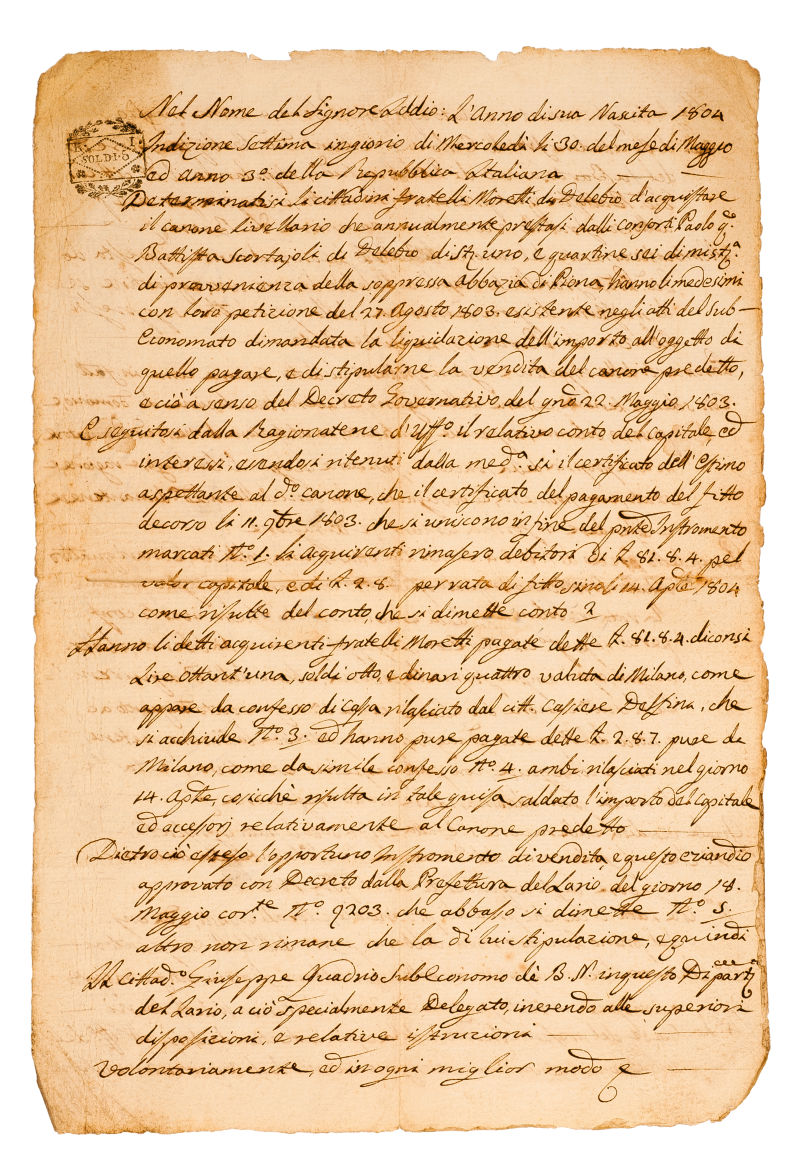 Nel Nome del Signore Iddio: L'Anno di sua Nascita 1804
R. I.
SOLDI 5
Indizione settima in giorno di Mercoledì li 30. del mese di Maggio
ed Anno 3.º della Repubblica Italiana
Determinatisi li cittadini fratelli Moretti di Delebio d'acquistare
il canone livellario che annualmente prestasi dalli consorti Paolo q.º
Battista Scortajoli di Delebio di st. uno, e quartine sei di mist.ª
di provenienza della soppressa Abbazia di Piona, hanno li medesimi
con loro petizione del 27. Agosto 1803. esistente negli atti del Sub-
Economato dimandata la liquidazione dell'importo all'oggetto di
quello pagare, e di stipularne la vendita del canone predetto,
e ciò a senso del Decreto Governativo del gno 22. Maggio 1803.
Eseguitosi dalla Ragionateria d'Uff.º il relativo conto del Capitale, ed
interessi, essendosi ritenuti dalla med.ª si il certificato dell'Estimo
aspettante al d.º canone, che il certificato del pagamento del fitto
decorso li 11. 9bre 1803. che si uniscono in fine del pnte Instromento
marcati N.º 1. li Acquirenti rimasero debitori di L. 81. 8. 4. pel
valor capitale, e di L. 2. 8. per rata di fitto sino li 14. Aple 1804
come risulta del conto, che si dimette conto 2
Hanno li detti acquirenti fratelli Moretti pagate dette L. 81. 8. 4. diconsi
Lire Ottant'una, soldi otto, e dinari quattro valuta di Milano, come
appare da confesso di Cassa rilasciato dal citt. Cassiere Delfini, che
si acchiude N.º 3. ed hanno pure pagate dette L. 2. 8. 7. pure di
Milano, come da simile confesso N.º 4. ambi rilasciati nel giorno
14. Aple, cosicchè risulta in tale guisa saldato l'importo del Capitale
ed accessorj relativamente al Canone predetto
Dietro ciò esteso l'opportuno Instromento di vendita, e questo eziandio
approvato con Decreto dalla Prefettura del Lario del giorno 18.
Maggio cor.te N.º 9203. che abbasso si dimette N.º 5.
altro non rimane che la di lui stipulazione, e quindi
Il Cittad.º Giuseppe Quadrio SubEconomo de B. N. in questo Dipart.
del Lario, a ciò specialmente Delegato, inerendo alle superiori
disposizioni, e relative istruzioni
Volontariamente, ed in ogni miglior modo e